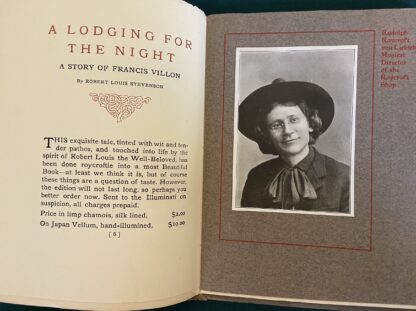 A LODGING FOR
THE NIGHT
A STORY OF FRANCIS VILLON
BY ROBERT LOUIS STEVENSON
THIS exquisite tale, tinted with wit and ten-
der pathos, and touched into life by the
spirit of Robert Louis the Well-Beloved, has
been done roycroftie into a most Beautiful
Book—at least we think it is, but of course
these things are a question of taste. However,
the edition will not last long, so perhaps you
better order now. Sent to the Illuminati on
suspicion, all charges prepaid.
Price in limp chamois, silk lined. $2.00
On Japan Vellum, hand-illumined. $10.00
[ 5 ]
Rudolph
Roycroft
von
Musical
Director
of the
Roycroft
Shop